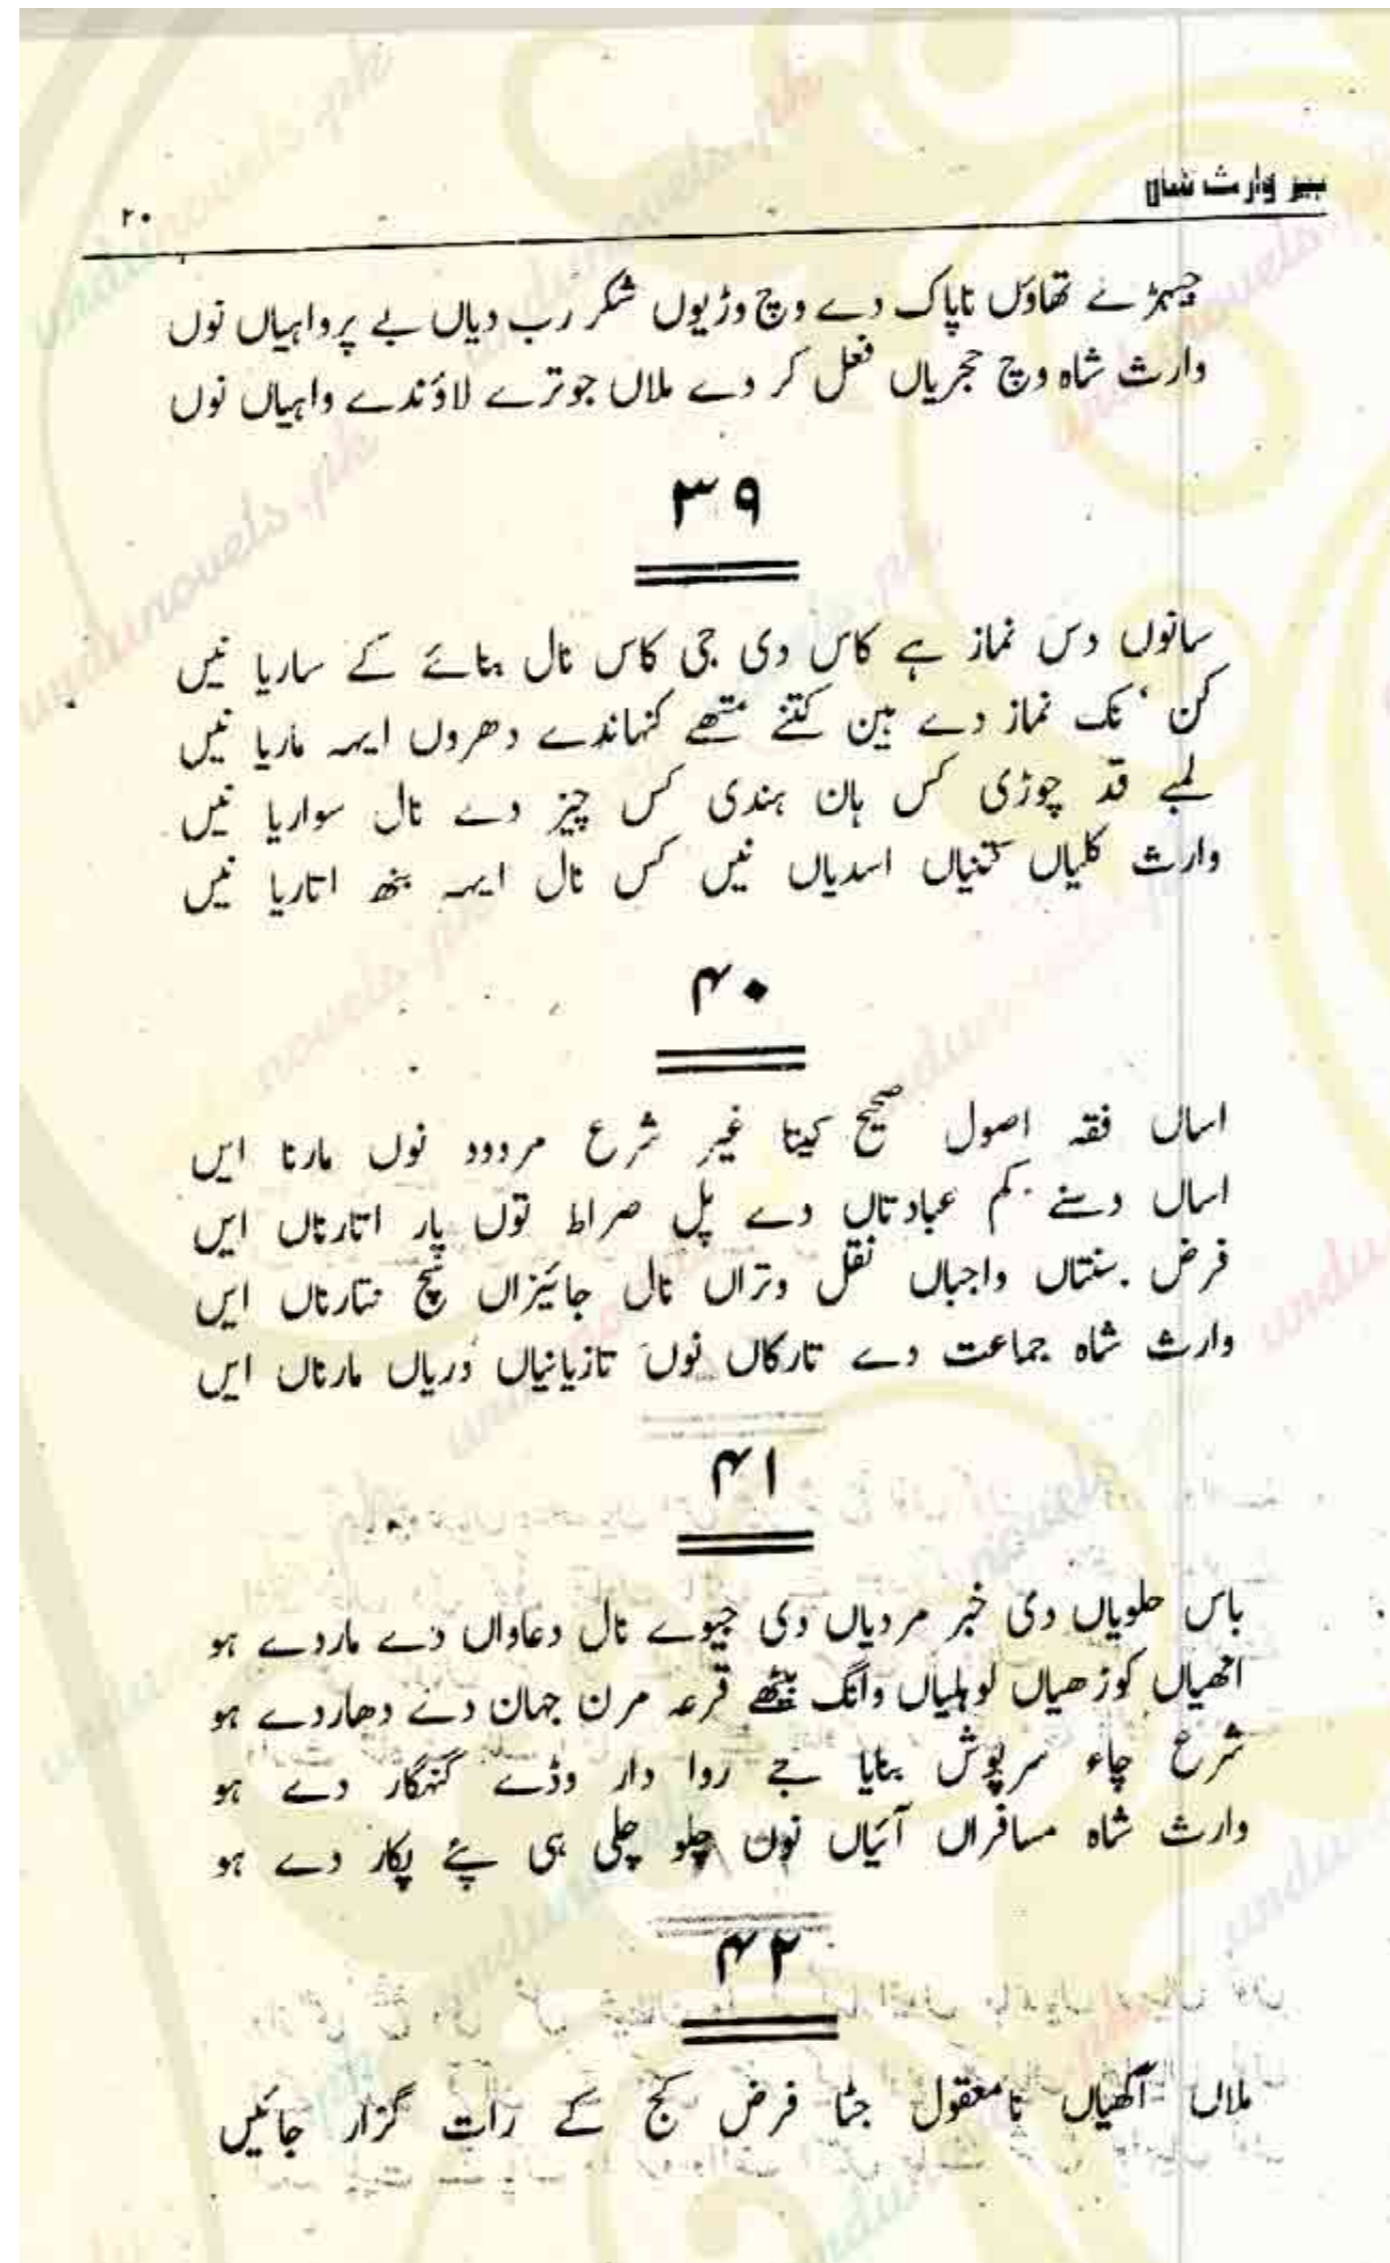 ہیر وارث شاہ
۲۰
جیہڑے تھاؤں ناپاک دے وچ وڑیوں شکر رب دیاں بے پرواہیاں نوں
وارث شاہ وچ حجریاں فعل کر دے ملاں جوترے لاؤندے واہیاں نوں
۳۹
سانوں دس نماز ہے کاس دی جی کاس نال بنائے کے ساریا نیں
کن نک نماز دے ہین کتنے متھے کنہاندے دھروں ایہہ ماریا نیں
لمبے قد چوڑی کس ہان ہندی کس چیز دے نال سواریا نیں
وارث کلیاں کتنیاں اسدیاں نیں کس نال ایہہ بنھ اتاریا نیں
۴۰
اساں فقہ اصول صحیح کیتا غیر شرع مردود نوں مارنا ایں
اساں دسنے کم عبادتاں دے پل صراط توں پار اتارناں ایں
فرض سنتاں واجباں نفل وتراں نال جائیزاں سچ نتارناں ایں
وارث شاہ جماعت دے تارکاں نوں تازیانیاں دریاں مارناں ایں
۴۱
باس حلویاں دی خبر مردیاں دی جیوے نال دعاواں دے ماردے ہو
انھیاں کوڑھیاں لوہلیاں وانگ بیٹھے قرعہ مرن جہان دے دھاردے ہو
شرع چاء سرپوش بنایا جے روا دار وڈے گنہگار دے ہو
وارث شاہ مسافراں آئیاں نوں چلو چلی ہی پئے پکار دے ہو
۴۲
ملاں آکھیاں نامعقول جٹا فرض کج کے رات گزار جائیں
urdunovels.pk